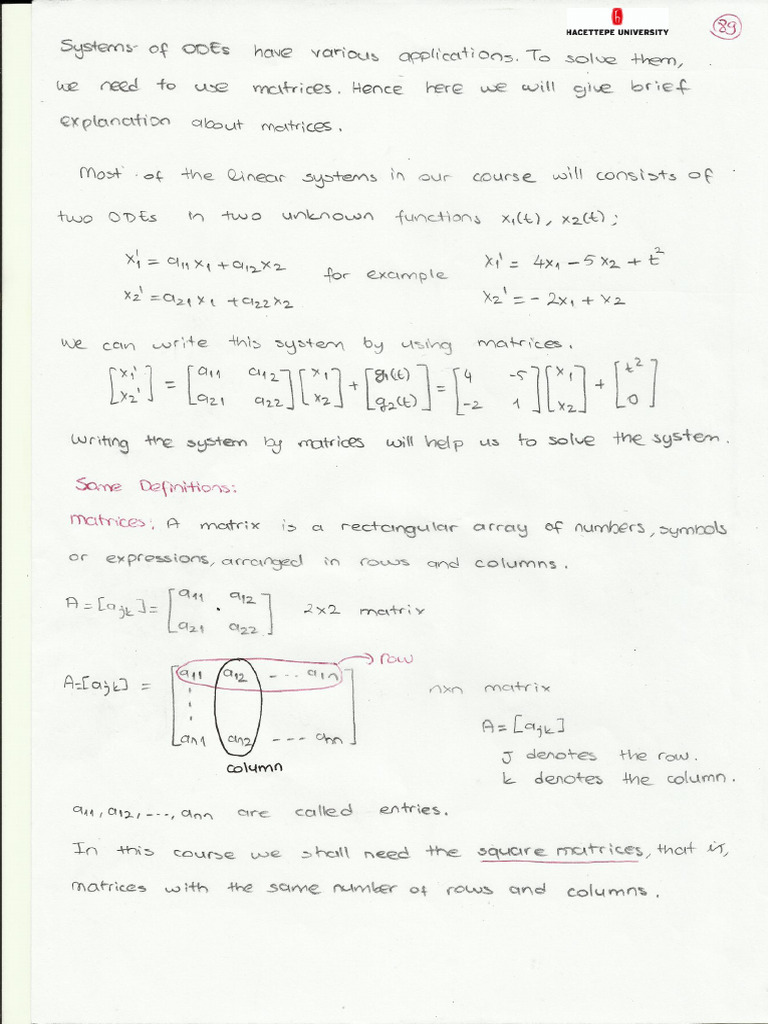 HACETTEPE UNIVERSITY
89
Systems of ODEs have various applications. To solve them,
we need to use matrices. Hence here we will give brief
explanation about matrices.
Most of the linear systems in our course will consists of
two ODEs in two unknown functions x₁(t), x₂(t);
x₁' = a₁₁x₁ + a₁₂x₂ for example x₁' = 4x₁ - 5x₂ + t²
x₂' = a₂₁x₁ + a₂₂x₂ x₂' = -2x₁ + x₂
we can write this system by using matrices.
[x₁' ; x₂'] = [a₁₁ a₁₂ ; a₂₁ a₂₂] [x₁ ; x₂] + [g₁(t) ; g₂(t)] = [4 -5 ; -2 1] [x₁ ; x₂] + [t² ; 0]
writing the system by matrices will help us to solve the system.
Some Definitions:
matrices: A matrix is a rectangular array of numbers, symbols
or expressions, arranged in rows and columns.
A = [aⱼₖ] = [a₁₁ . a₁₂ ; a₂₁ a₂₂] 2x2 matrix
→ row
A = [aⱼₖ] = [a₁₁ a₁₂ --- a₁ₙ ; aₙ₁ aₙ₂ --- aₙₙ] nxn matrix
A = [aⱼₖ]
J denotes the row.
column
k denotes the column.
a₁₁, a₁₂, ---, aₙₙ are called entries.
In this course we shall need the square matrices, that is,
matrices with the same number of rows and columns.